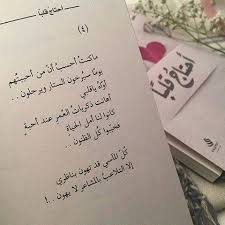 احتاج قلباً
(٤)
ما كنت أحسب أن من أحببتهم
يوماً سيرخون الستار ويرحلون ..
أواه يا قلبي
أهانت ذكريات العمر عند أحبةٍ
كانوا لنا أمل الحياة
فخيبوا كل الظنون ..
كل المآسي قد تهون بناظري
إلا التلاعب بالمشاعر لا يهون ..!
احتاج قلباً